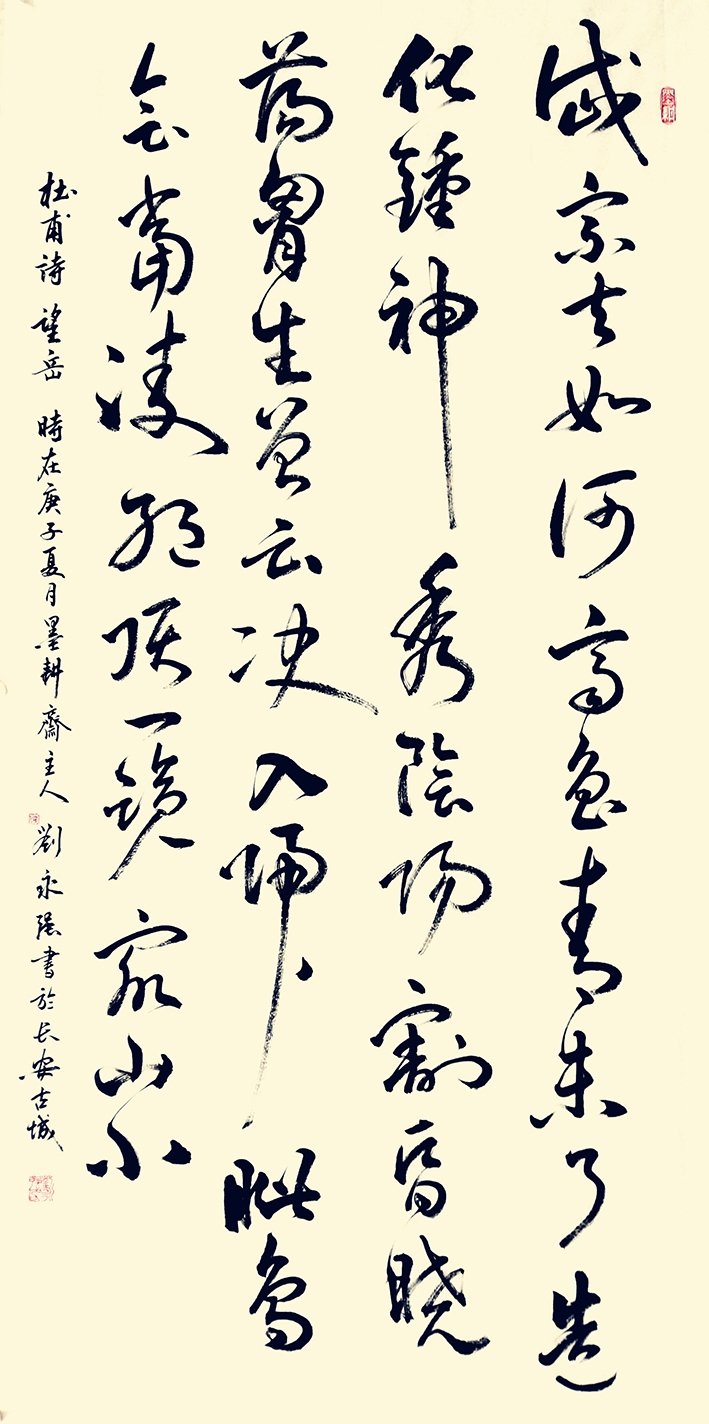 岱宗夫如何齊魯青未了造
化鍾神秀陰陽割昏曉
蕩胷生曾云决入歸眥鳥
會當凌絕頂一覽衆山小
杜甫詩 望岳 時在庚子夏月墨耕齋主人 劉永强書於长安古城